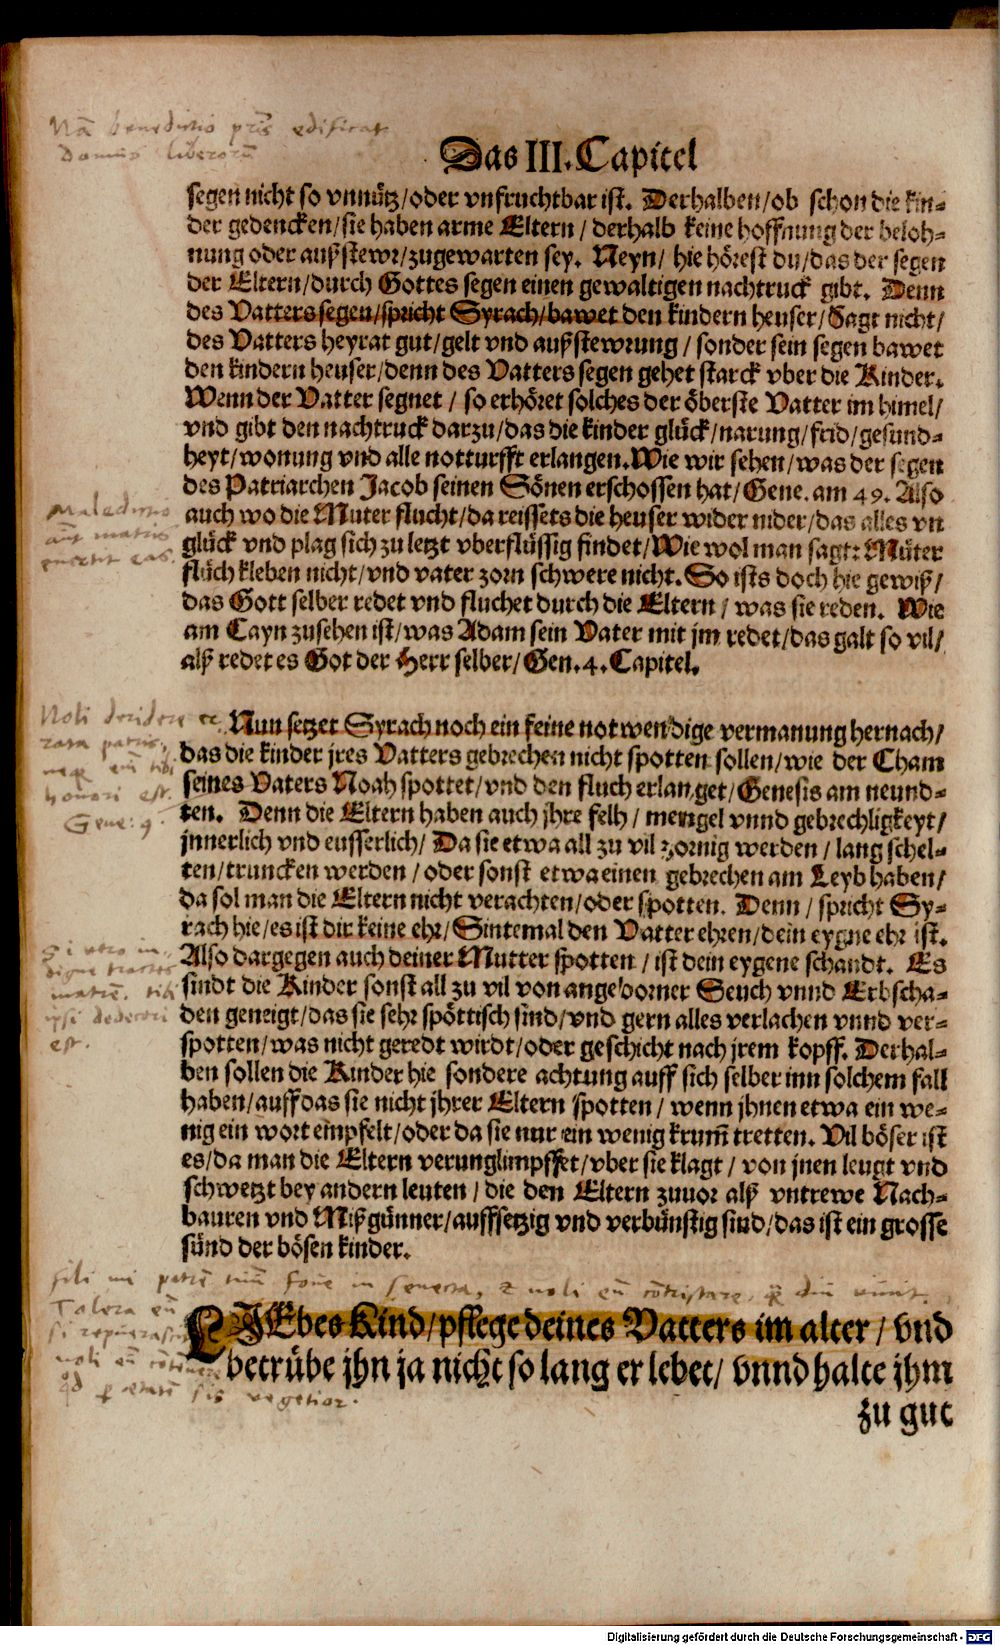 Nā benedictio pris edificat
domus liberorū
Das III. Capitel
segen nicht so vnnütz/oder vnfruchtbar ist. Derhalben/ob schon die kin-
der gedencken/sie haben arme Eltern/derhalb keine hoffnung der beloh-
nung oder außstewr/zugewarten sey. Neyn/hie hörest du/das der segen
der Eltern/durch Gottes segen einen gewaltigen nachtruck gibt. Denn
des Vatters segen/spricht Syrach/bawet den kindern heuser/Sagt nicht/
des Vatters heyrat gut/gelt vnd außstewrung/sonder sein segen bawet
den kindern heuser/denn des Vatters segen gehet starck vber die Kinder.
Wenn der Vatter segnet/so erhöret solches der öberste Vatter im himel/
vnd gibt den nachtruck darzu/das die kinder glück/narung/frid/gesund-
heyt/wonung vnd alle notturfft erlangen. Wie wir sehen/was der segen
des Patriarchen Jacob seinen Sönen erschossen hat/Gene. am 49. Also
auch wo die Muter flucht/da reissets die heuser wider nider/das alles vn
glück vnd plag sich zu letzt vberflüssig findet/Wie wol man sagt: Müter
flüch kleben nicht/vnd vater zorn schwere nicht. So ists doch hie gewiß/
das Gott selber redet vnd fluchet durch die Eltern/was sie reden. Wie
am Cayn zusehen ist/was Adam sein Vater mit jm redet/das galt so vil/
alß redet es Got der Herr selber/Gen. 4. Capitel.
Maledictio
aūt matris
euertit eas.
Nun setzet Syrach noch ein feine notwendige vermanung hernach/
das die kinder jres Vatters gebrechen nicht spotten sollen/wie der Cham
seines Vaters Noah spottet/vnd den fluch erlanget/Genesis am neund-
ten. Denn die Eltern haben auch jhre felh/mengel vnnd gebrechligkeyt/
jnnerlich vnd eusserlich/Da sie etwa all zu vil zornig werden/lang schel-
ten/truncken werden/oder sonst etwa einen gebrechen am Leyb haben/
da sol man die Eltern nicht verachten/oder spotten. Denn/spricht Sy-
rach hie/es ist dir keine ehr/Sintemal den Vatter ehren/dein eygne ehr ist.
Also dargegen auch deiner Mutter spotten/ist dein eygene schandt. Es
sindt die Kinder sonst all zu vil von angeborner Seuch vnnd Erbscha-
den geneigt/das sie sehr spöttisch sind/vnd gern alles verlachen vnnd ver-
spotten/was nicht geredt wirdt/oder geschicht nach jrem kopff. Derhal-
ben sollen die Kinder hie sondere achtung auff sich selber inn solchem fall
haben/auff das sie nicht jhrer Eltern spotten/wenn jhnen etwa ein we-
nig ein wort empfelt/oder da sie nur ein wenig krum̃ tretten. Vil böser ist
es/da man die Eltern verunglimpffet/vber sie klagt/von jnen leugt vnd
schwetzt bey andern leuten/die den Eltern zuuor alß vntrewe Nach-
bauren vnd Mißgünner/auffsetzig vnd verbünstig sind/das ist ein grosse
sünd der bösen kinder.
Noli deridere
patris,
neque eni tibi
honori est.
Gene: 9.
Si vero in-
digne tractes
matrē, tibi
ipsi dedecori
est.
fili mi patrē tuū foue in senecta, & noli eū cōtristare, dū viuit.
Tolera eū
si repuerasc
noli eū cōtēnere
sis vegetior.
LJEbes Kind/pflege deines Vatters im alter/vnd
betrübe jhn ja nicht so lang er lebet/vnnd halte jhm
zu gut
Digitalisierung gefördert durch die Deutsche Forschungsgemeinschaft - DFG